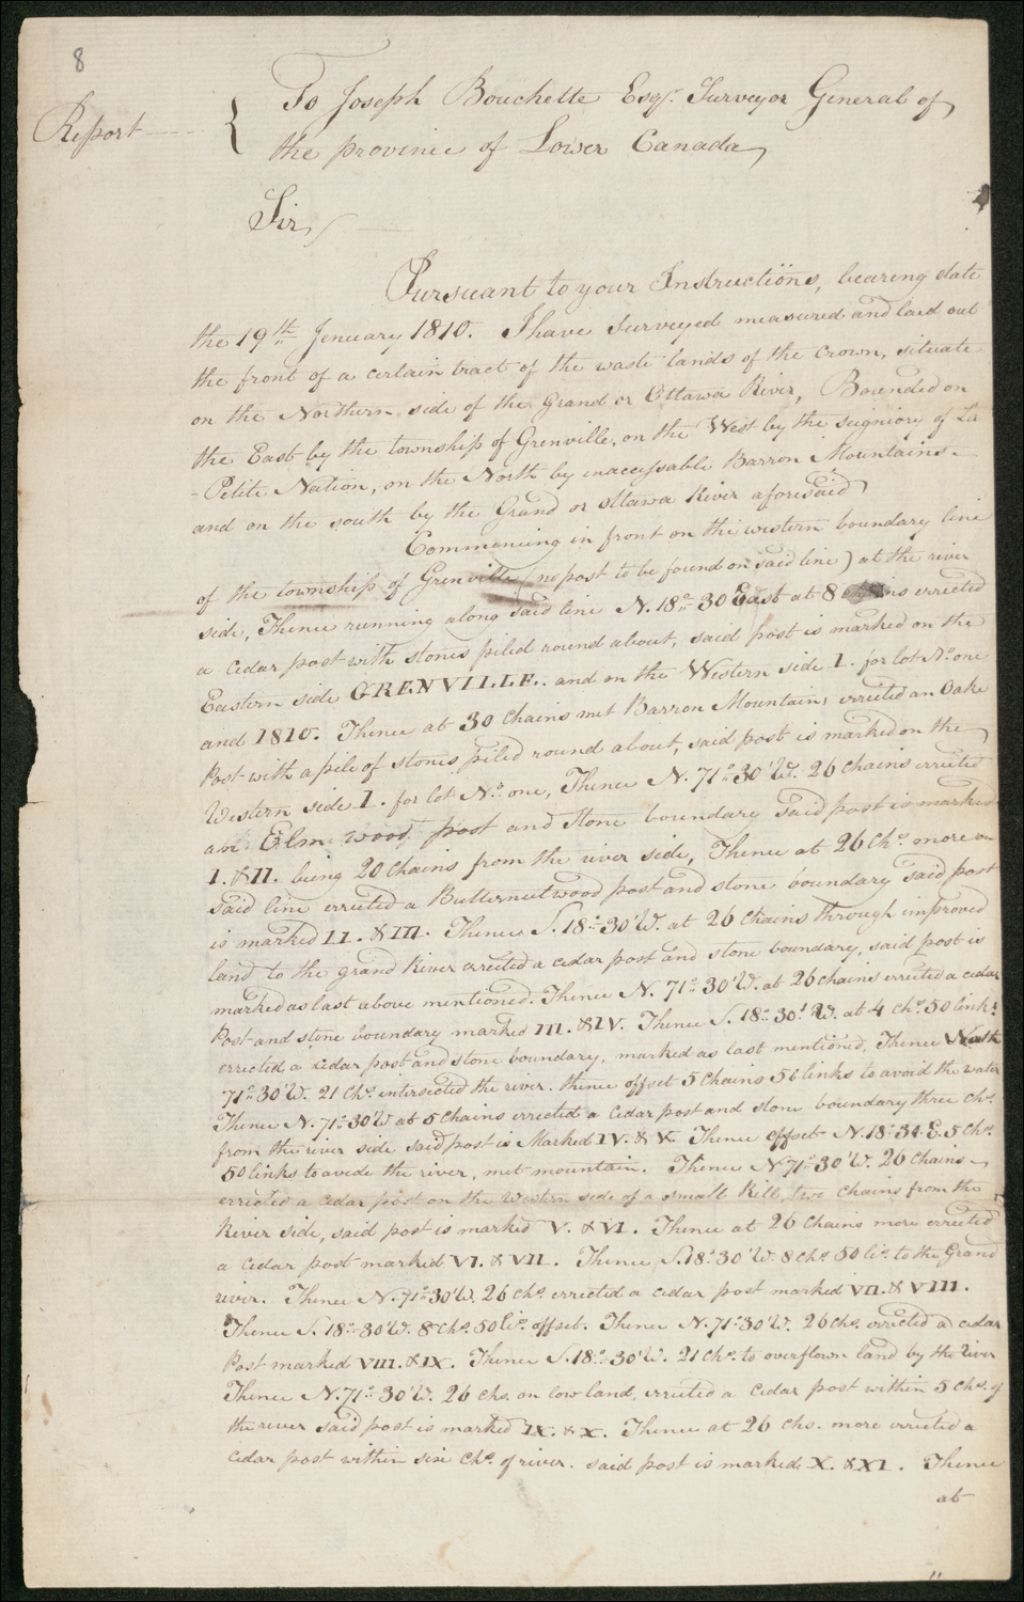 8
Report
To Joseph Bouchette Esqr. Surveyor General of
the province of Lower Canada,
Sir,
Pursuant to your Instructiöns, bearing date
the 19th Jenuary 1810. I have Surveyed measured and laid out
the front of a certain tract of the waste lands of the crown, situate
on the Northern side of the Grand or Ottawa River, Bounded on
the East by the township of Grenville, on the West by the seigniory of La
- Petite Nation, on the North by inaccessable Barron Mountains
and on the south by the Grand or ottawa River aforesaid,
Commencing in front on the western boundary line
of the township of Grenville (no post to be found on said line) at the river
side, Thence running along said line N. 18°. 30 East at 8 chains errected
a cedar post with stones piled round about, said post is marked on the
Eastern side GRENVILLE. and on the Western side I. for lot No. one
and 1810. Thence at 30 Chains met Barron Mountain, errected an Oake
Post with a pile of stones piled round about, said post is marked on the
Western side I. for lot No. one, Thence N. 71°. 30' W. 26 chains errected
an Elm wood post and stone boundary said post is marked
I. & II. being 20 chains from the river side, Thence at 26 chs. more on
said line errected a Butternut wood post and stone boundary said post
is marked II. & III. Thence S. 18°. 30' W. at 26 chains through improved
land to the grand River errected a cedar post and stone boundary, said post is
marked as last above mentioned. Thence N. 71°. 30' W. at 26 chains errected a cedar
Post and stone boundary marked III. & IV. Thence S. 18°. 30' W. at 4 chs. 50 links
errected a cedar post and stone boundary, marked as last mentioned, Thence North
71°. 30' W. 21 chs. intersected the river. thence offset 5 chains 56 links to avoid the water
Thence N. 71°. 30' W at 5 chains errected a cedar post and stone boundary three chs.
from the river side said post is Marked IV. & V. Thence offset N. 18°. 34. E. 5 chs.
50 links to avoide the river, met mountain. Thence N 71°. 30' W. 26 chains
errected a cedar post on the western side of a small Kill, two chains from the
River side, said post is marked V. & VI. Thence at 26 chains more errected
a cedar post marked VI. & VII. Thence S. 18°. 30' W. 8 chs. 50 lis. to the Grand
river. Thence N. 71°. 30' W. 26 chs. errected a cedar post marked VII. & VIII.
Thence S. 18°. 30' W. 8 chs. 50 lis. offset. Thence N. 71°. 30' W. 26 chs. errected a cedar
Post marked VIII. & IX. Thence S. 18°. 30' W. 21 chs. to overflown land by the river
Thence N. 71°. 30' W. 26 chs. on low land, errected a cedar post within 5 chs. of
the river said post is marked IX. & X. Thence at 26 chs. more errected a
cedar post within six chs. of river. said post is marked X. & XI. Thence
at